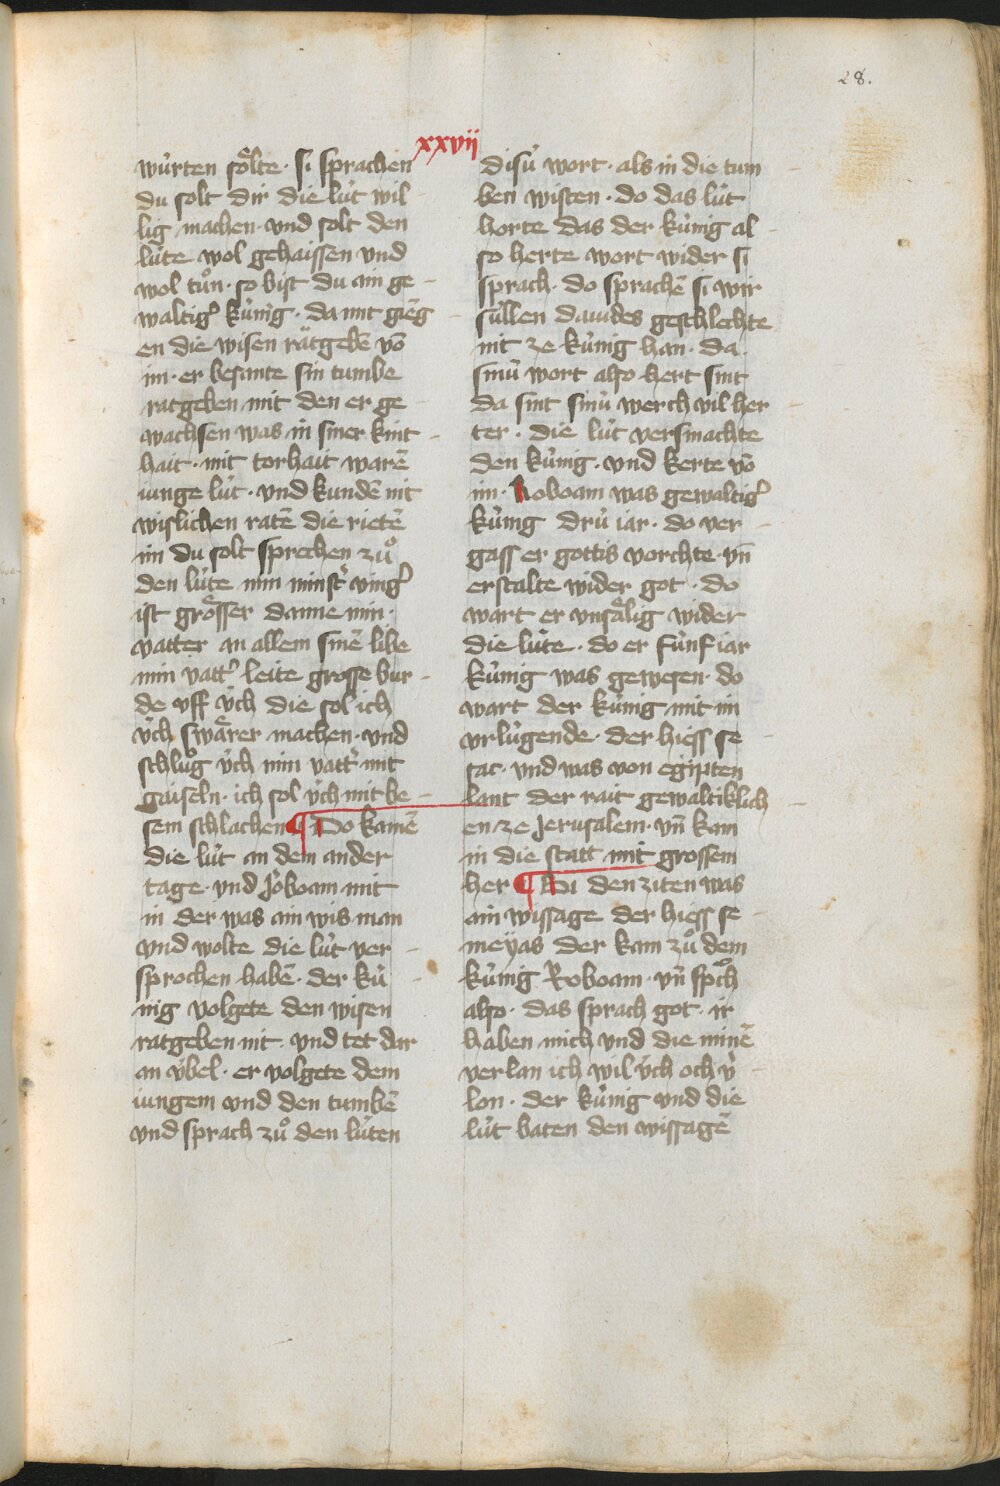 28.
xxvii
wúrten soͤlte · si sprachen
du solt dir die lút wil
lig machen · vnd solt den
lúte wol gehaissen vnd
wol tuͦn · so bist du ain ge
waltigˀ kúnig · da mit gienḡ
en die wisen raͤtgebē vō
im · er besante sin tumbe
ratgeben mit den er ge
wachsen was in siner kint
hait · mit torhait warē
iunge lút · vnd kundē nit
wislichen ratē die rietē
im du solt sprechen zuͦ
den lúte min minstˀ vingˀ
ist groͤsser danne min ·
vatter an allem sinē libe
min vattˀ leite grosse bur
de vff úch die sol ich
úch swaͤrer machen · vnd
schluͦg úch min vattˀ mit
gaiseln · ich sol úch mit be
sem schlachen ¶ Do kamē
die lút an dem ander
tage · vnd Joͤboam mit
in der was ain wis man
vnd wolte die lút ver
sprochen habē · der kú
nig volgete den wisen
ratgeben nit · vnd tet dar
an úbel · er volgete dem
iungem vnd den tumbē
vnd sprach zuͦ den lúten
disú wort · als in die tum
ben wisten · do das lút
horte das der kúnig al
so herte wort wider si
sprach · do sprachē si wir
súllen dauides geschlechte
nit ze kúnig han · da
sinú wort also hert sint
da sint sinú werch vil her
ter · die lút versmachte
den kúnig · vnd kerte vō
im · Roboam was gewaltigˀ
kúnig drú iar · do ver
gass er gottis vorchte · vn̄
erstalte wider got · do
wart er vnsaͤlig wider
die lúte · do er fúnf iar
kúnig was gewesen · do
wart der kúnig mit im
vrlúgende · der hiess se
sac · vnd was von egipten
lant der rait gewaltiklich
en ze Jerusalem · vn̄ kam
in die statt mit grossem
her ¶ Bi den ziten was
ain wissage der hiess se
meyas der kam zuͦ dem
kúnig Roboam · vn̄ spͦch
also · das sprach got · ir
haben mich vnd die minē
verlan ich wil úch och vˀ
lon · der kúnig vnd die
lút baten den wissagē